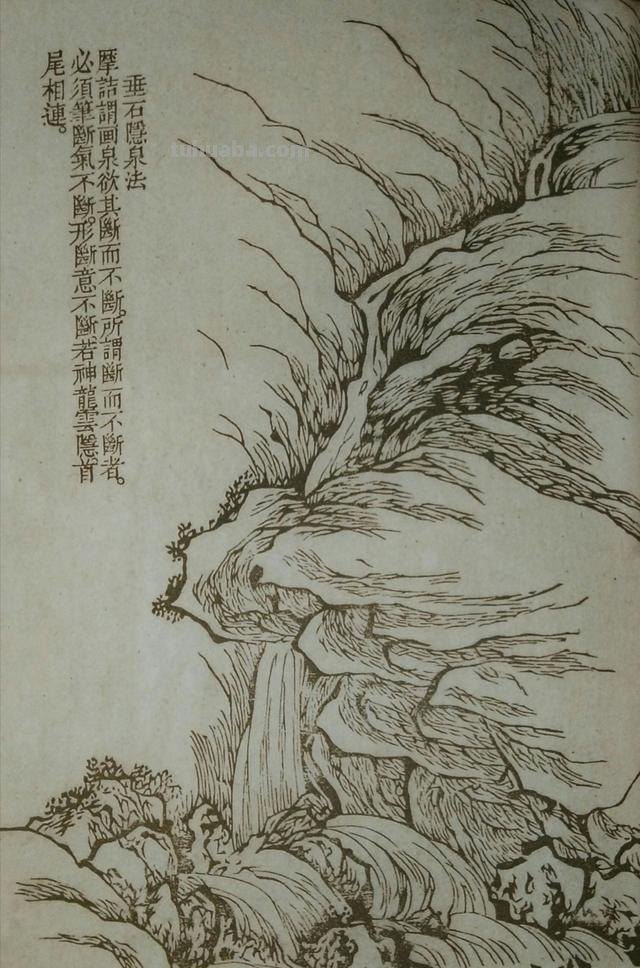 垂石隠泉法
摩詰謂画泉欲其斷而不斷。所謂斷而不斷者。
必須筆斷氣不斷。形斷意不斷。若神龍雲隱。首
尾相連。
tuhuaba.com